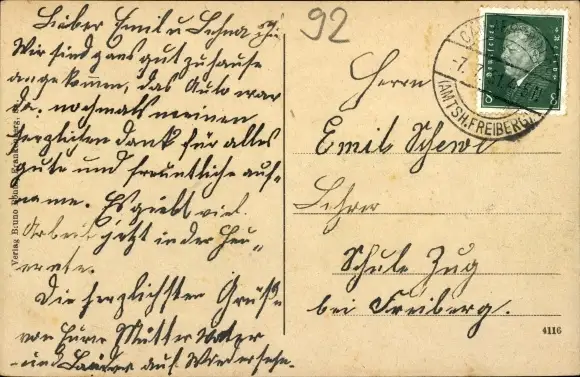 Lieber Emil u Lehna
Wir sind ganz gut zuhause
angekomm, das Auto war
da. nochmals meinen
herzlichen dank für alles
gute und freuntliche auf-
name. Es giebt viel
Arbeit jetzt in der Heu-
ernte.
Die herzlichsten Grüße
von Eurer Mutter Vater
und auf Wiedersehn.
Verlag Bruno
92
Deutsches Reich
8 8
(AMTSH. FREIBERG)
Herrn
Emil Schewl
Lehrer
Schule Zug
bei Freiberg.
4116